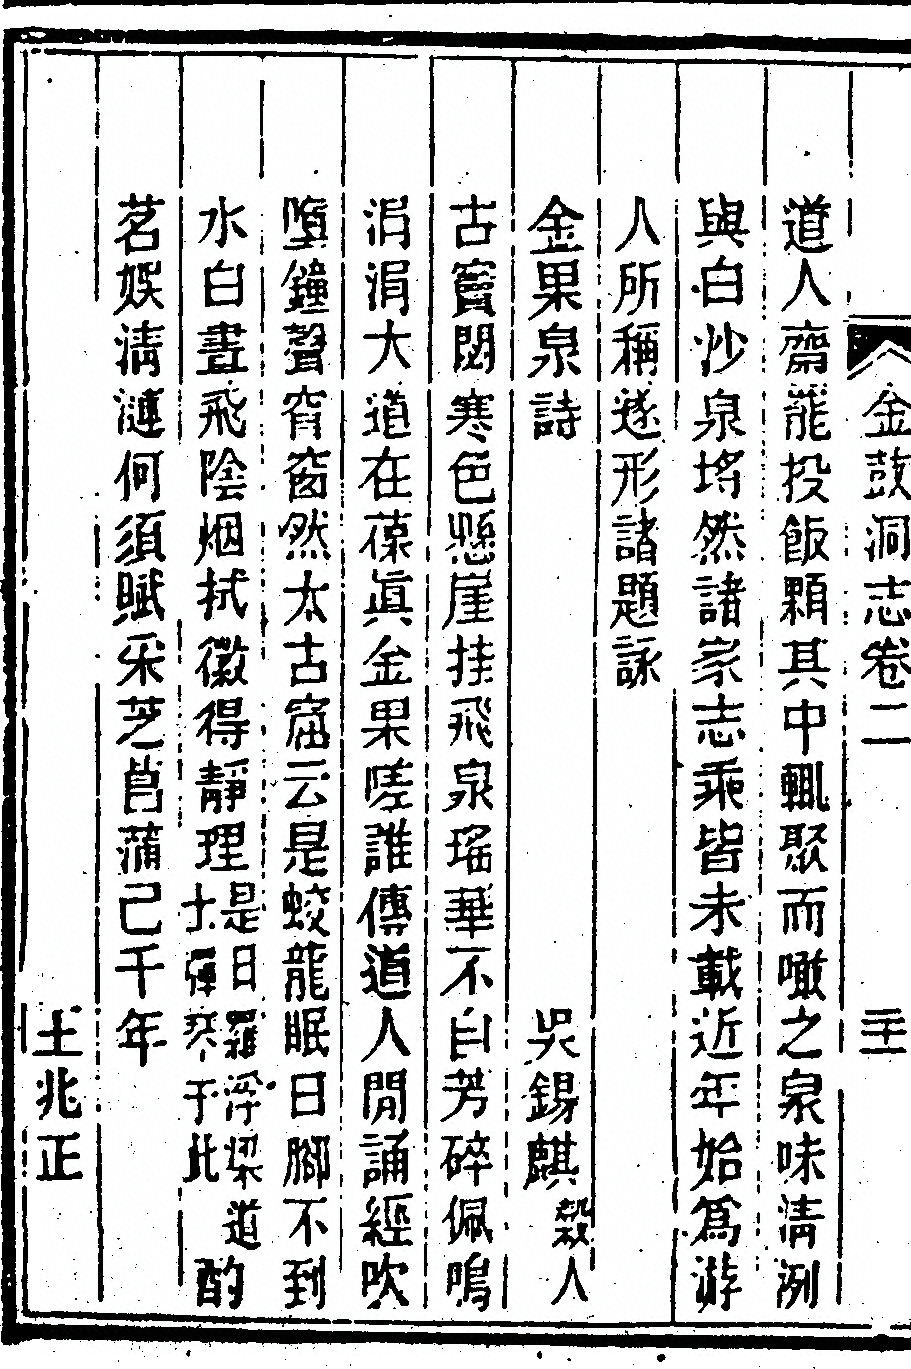 金鼓洞志卷二 二十
道人齋能投飯顆其中輒聚而噉之泉味清洌
與白沙泉埒然諸家志乘皆未載近年始爲游
人所稱遂形諸題詠
金果泉詩 吳錫麒 榖人
古竇悶寒色懸崖挂飛泉瑤華不自芳碎佩鳴
涓涓大道在葆眞金果嗟誰傳道人閒誦經吹
墮鐘聲窅窗然太古窟云是蛟龍眠日腳不到
水白晝飛陰烟拭徽得靜理是日羅浮梁道士彈琴于此酌
茗娛清漣何須賦采芝菖蒲已千年
王兆正